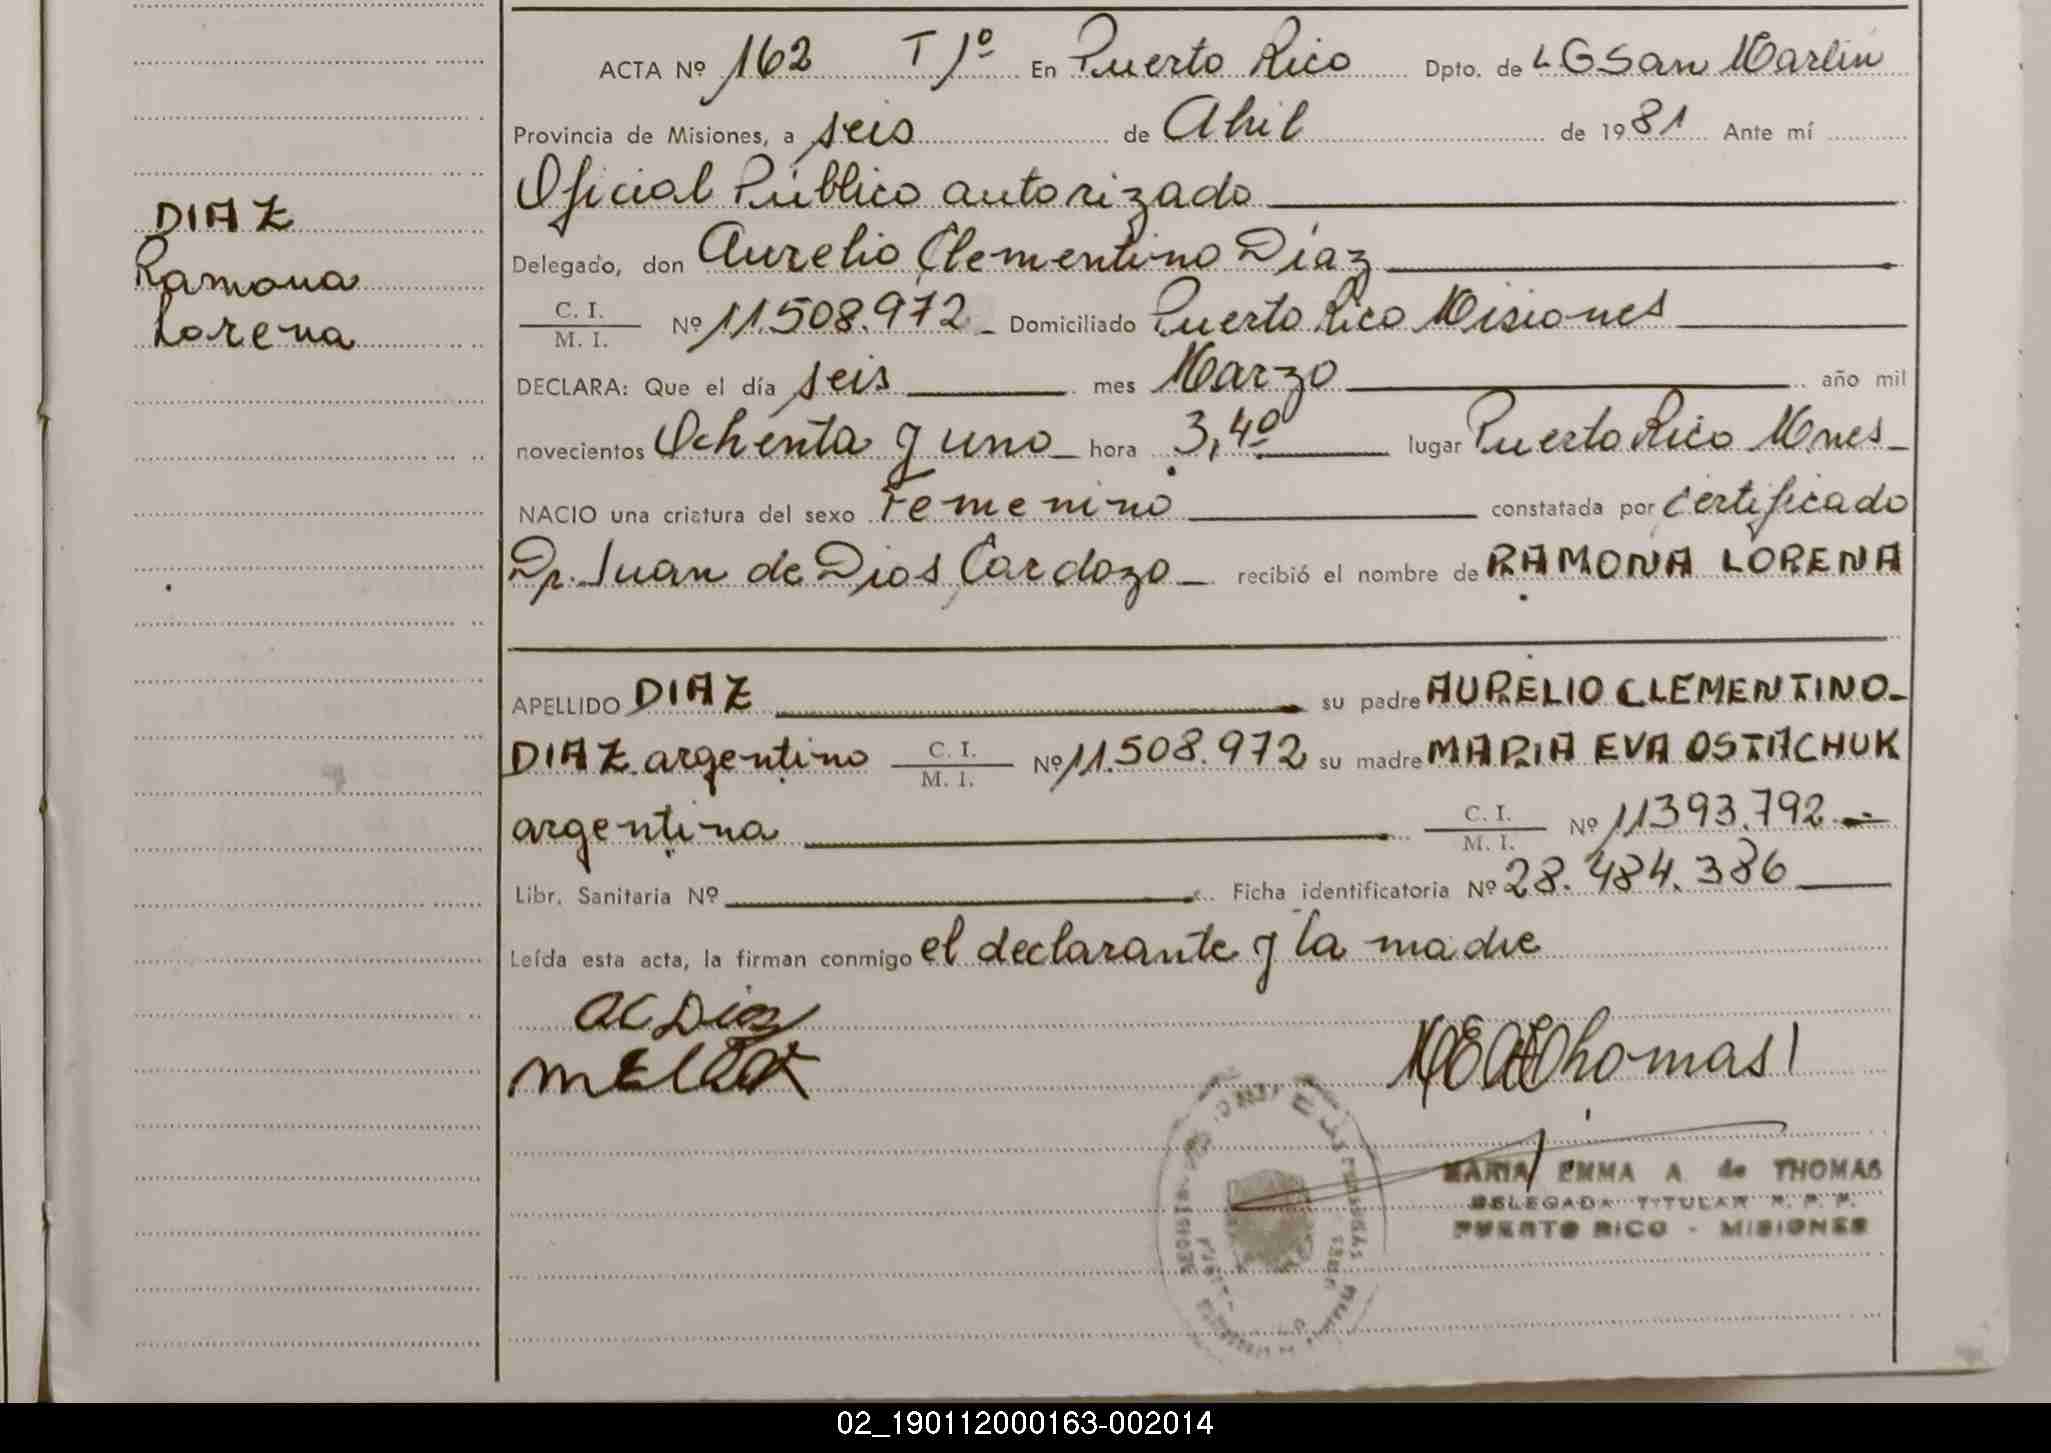 ACTA Nº 162 T 1º En Puerto Rico Dpto. de LG San Martin
Provincia de Misiones, a seis de Abril de 1981 Ante mí
Oficial Público autorizado
DIAZ
Delegado, don Aurelio Clementino Díaz
Ramona
C. I. / M. I. Nº 11.508.972 Domiciliado Puerto Rico Misiones
Lorena
DECLARA: Que el día seis mes Marzo año mil
novecientos Ochenta y uno hora 3,40 lugar Puerto Rico Mnes
NACIO una criatura del sexo Femenino constatada por certificado
Dr. Juan de Dios Cardozo recibió el nombre de RAMONA LORENA
APELLIDO DIAZ su padre AURELIO CLEMENTINO
DIAZ argentino C. I. / M. I. Nº 11.508.972 su madre MARIA EVA OSTACHUK
argentina C. I. / M. I. Nº 11393.792
Libr. Sanitaria Nº Ficha identificatoria Nº 28.484.386
Leída esta acta, la firman conmigo el declarante y la madre
AC Diaz
Thomas
MARIA EMMA A. de THOMAS
DELEGADA TITULAR R. P. P.
PUERTO RICO - MISIONES
02_190112000163-002014